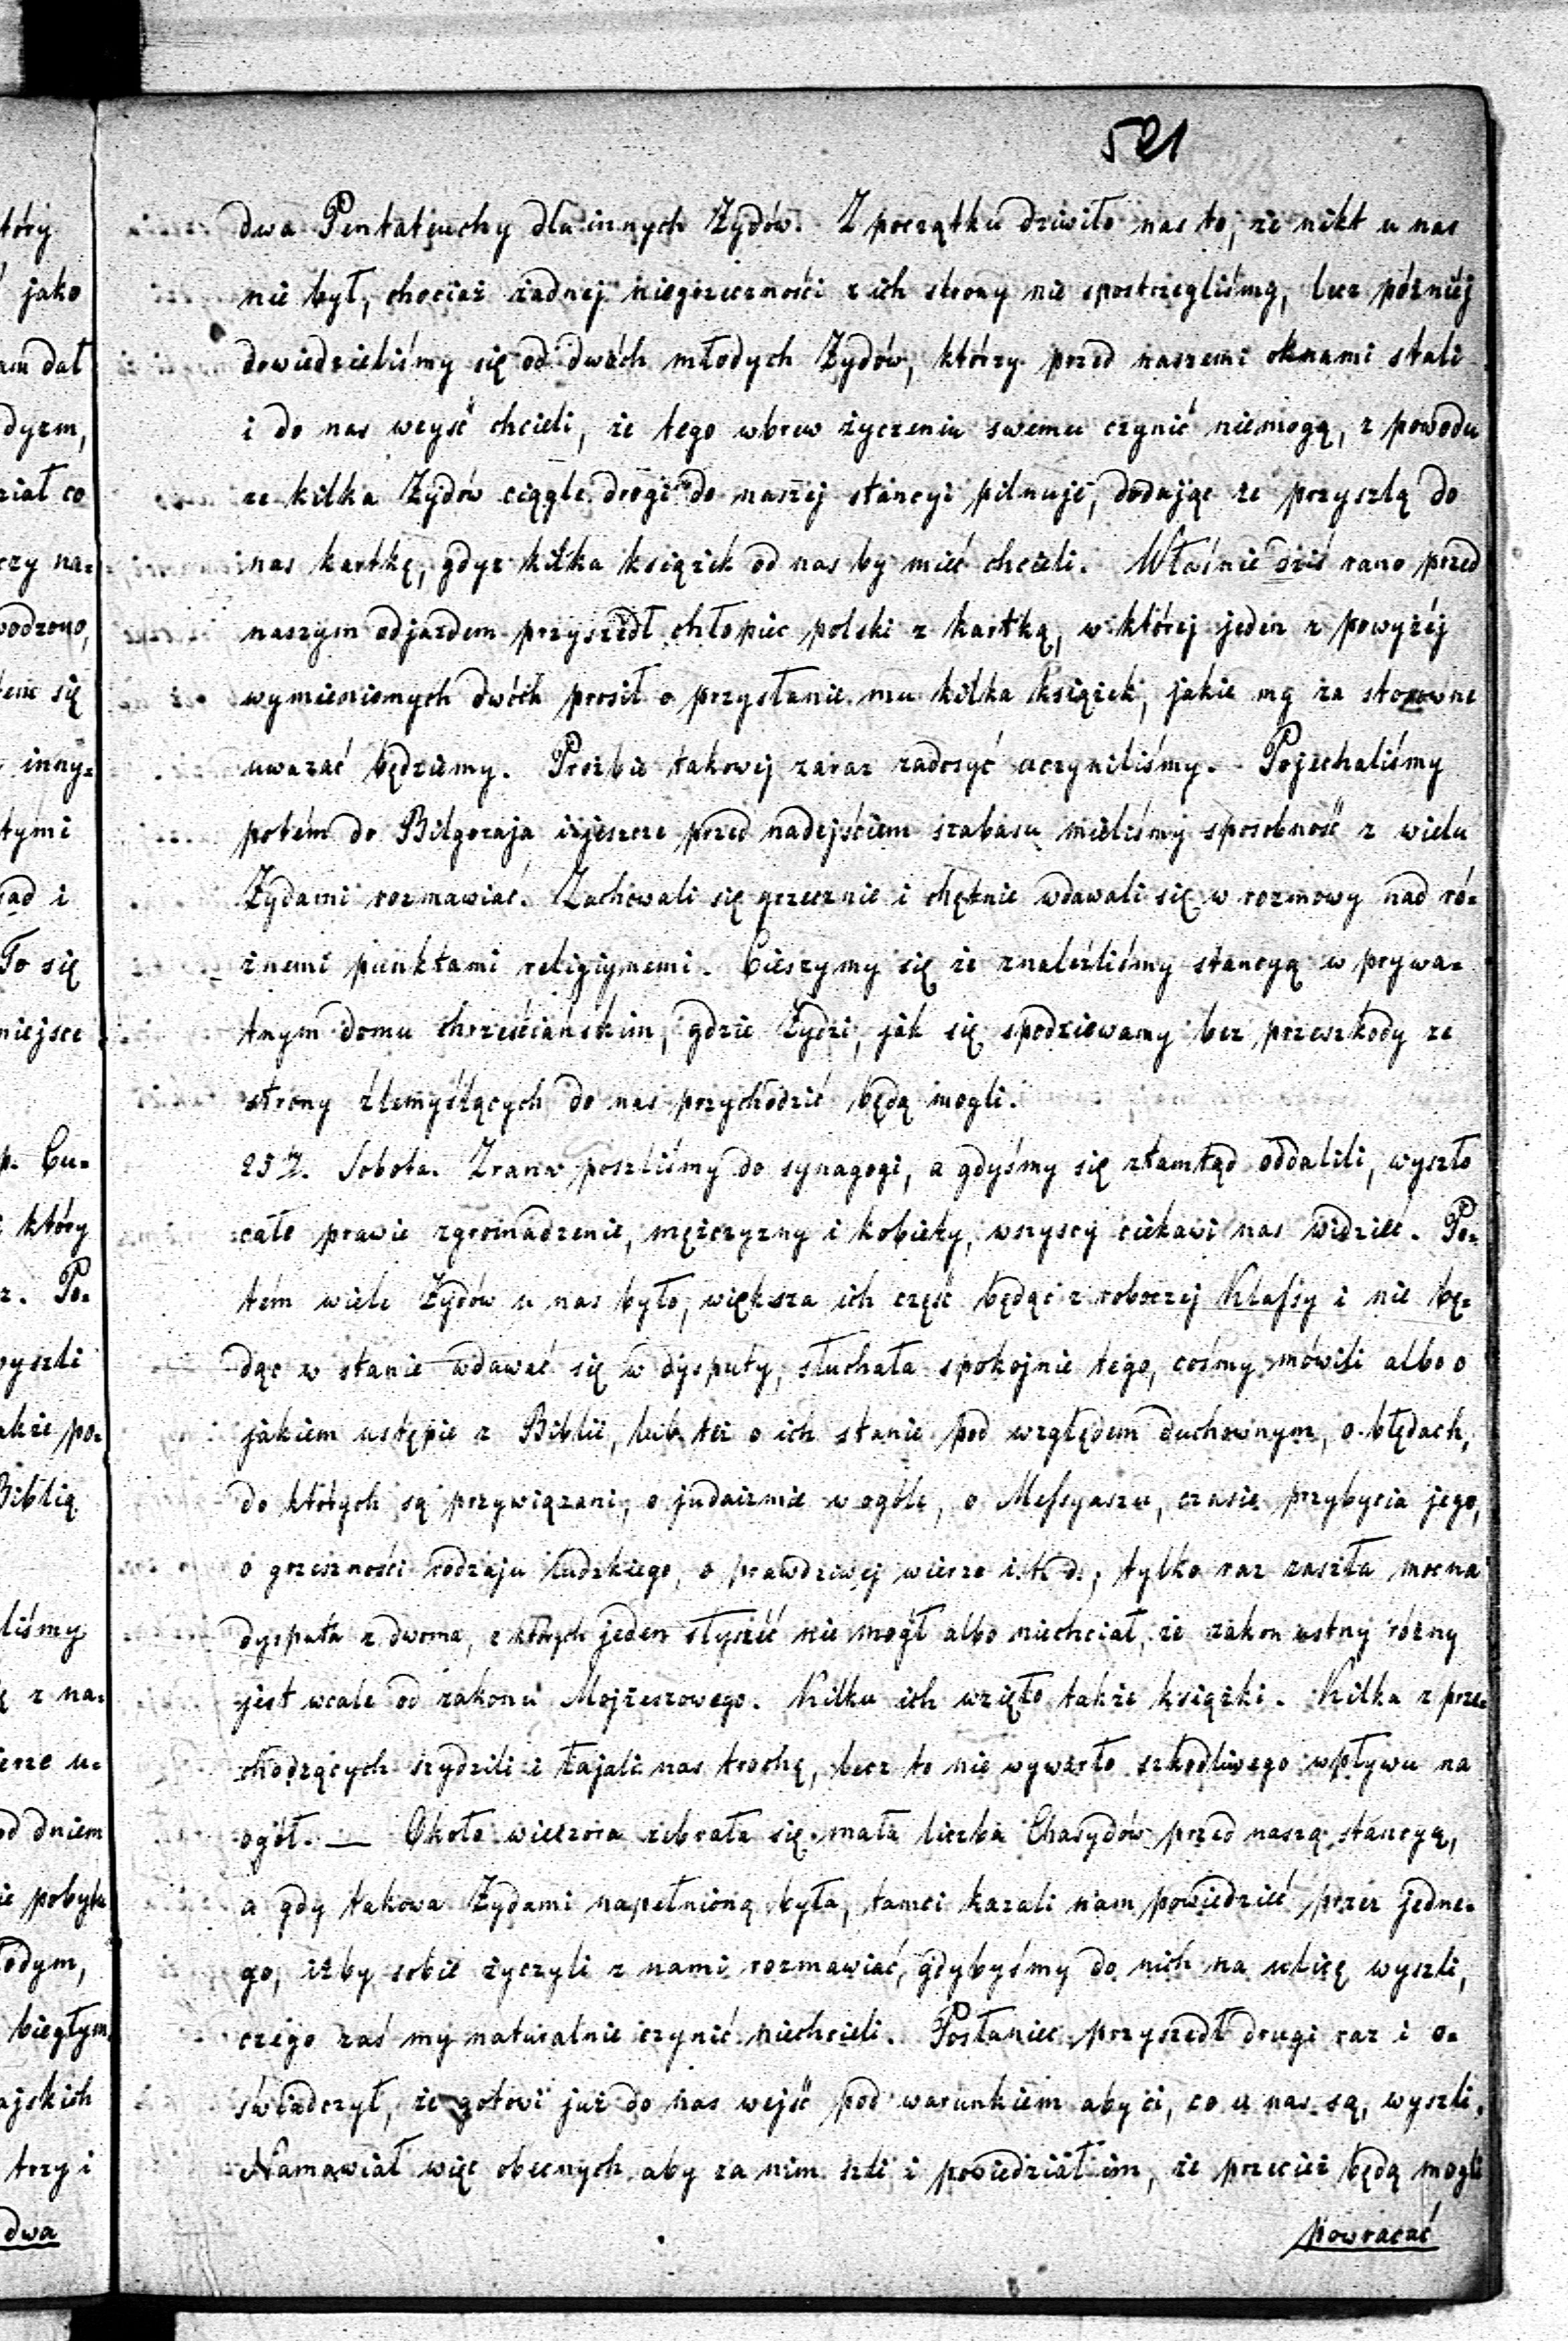 521
dwa Pentateuchy dla innych Żydów. Z początku dziwiło nas to, że nikt u nas
nie był, chociaż żadnej niegrzeczności z ich strony nie spostrzegliśmy, lecz później
dowiedzieliśmy się od dwóch młodych Żydów, którzy przed naszemi oknami stali
i do nas weyść chcieli, że tego wbrew życzeniu swemu czynić niemogą, z powodu
że kilka Żydów ciągle drogi do naszej stancyi pilnuje, dodając że przyszlą do
nas kartkę, gdyż kilka książek od nas by mieć chcieli. Właśnie dziś rano przed
naszym odjazdem przyszedł chłopiec polski z kartką, w której jeden z powyżej
wymienionych dwóch prosił o przysłanie mu kilka książek, jakie my za stosowne
uważać będziemy. Prożbie takowej zaraz zadosyć uczyniliśmy. Pojechaliśmy
potém do Biłgoraja i jeszcze przed nadejściem szabasu mieliśmy sposobność z wielu
Żydami rozmawiać. Zachowali się grzecznie i chętnie wdawali się w rozmowy nad ró-
żnemi punktami religiynemi. Cieszymy się że znaleźliśmy stancyą w prywa-
tnym domu chrześciańskim, gdzie Żydzi, jak się spodziewamy bez przeszkody ze
strony źlemyślących do nas przychodzić będą mogli.
25 Sobota. Zrana poszliśmy do synagogi, a gdyśmy się ztamtąd oddalili, wyszło
całe prawie zgromadzenie, mężczyzny i kobiety, wszyscy ciekawi nas widzieć. Po-
tém wiele Żydów u nas było, większa ich część będąc z roboczej Klassy i nie bę-
dąc w stanie wdawać się w dysputy, słuchała spokojnie tego, cośmy mówili albo o
jakiem ustępie z Biblii, lub też o ich stanie pod względem duchownym, o błędach,
do których są przywiązani, o judaizmie w ogóle, o Messyaszu, czasie przybycia jego,
o grzeszności rodzaju ludzkiego, o prawdziwej wierze i. t. d., tylko raz zaszła mocna
dysputa z dwoma, z których jeden słyszéć nie mógł albo niechciał, że zakon ustny różny
jest wcale od zakonu Mojżeszowego. Kilku ich wzięło także książki. Kilka z prze-
chodzących szydzili i łajali nas trochę, lecz to nie wywarło szkodliwego wpływu na
ogół. — Około wieczora zebrała się mała liczba Chasydów przed naszą stancyą,
a gdy takowa Żydami napełnioną była, tamci kazali nam powiedzieć przez jedne-
go, iżby sobie życzyli z nami rozmawiać, gdybyśmy do nich na ulicę wyszli,
czégo zaś my naturalnie czynić niechcieli. Posłaniec przyszedł drugi raz i o-
świadczył, że gotowi już do nas wejść pod warunkiem aby ci, co u nas są, wyszli.
Namawiał więc obecnych aby za nim szli i powiedział im, że przecież będą mogli
powracać